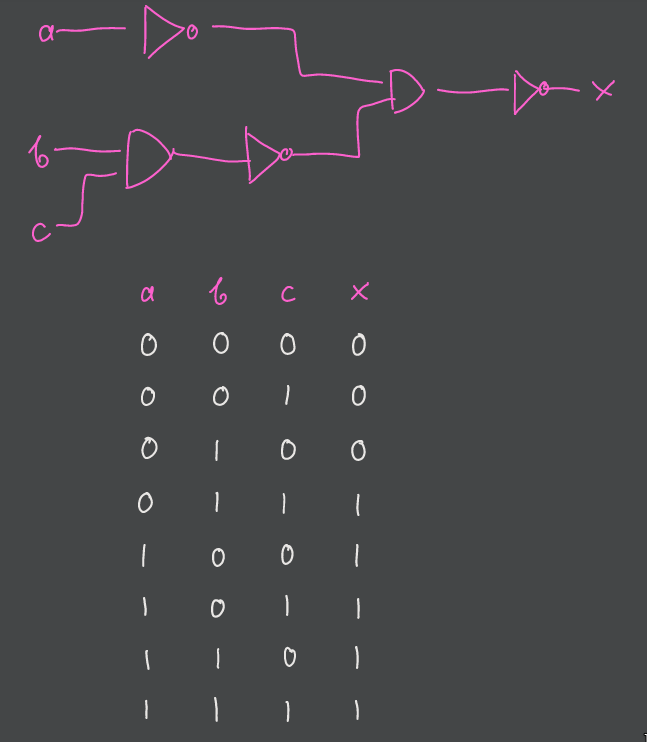 a
x
b
c
a b c x
0 0 0 0
0 0 1 0
0 1 0 0
0 1 1 1
1 0 0 1
1 0 1 1
1 1 0 1
1 1 1 1